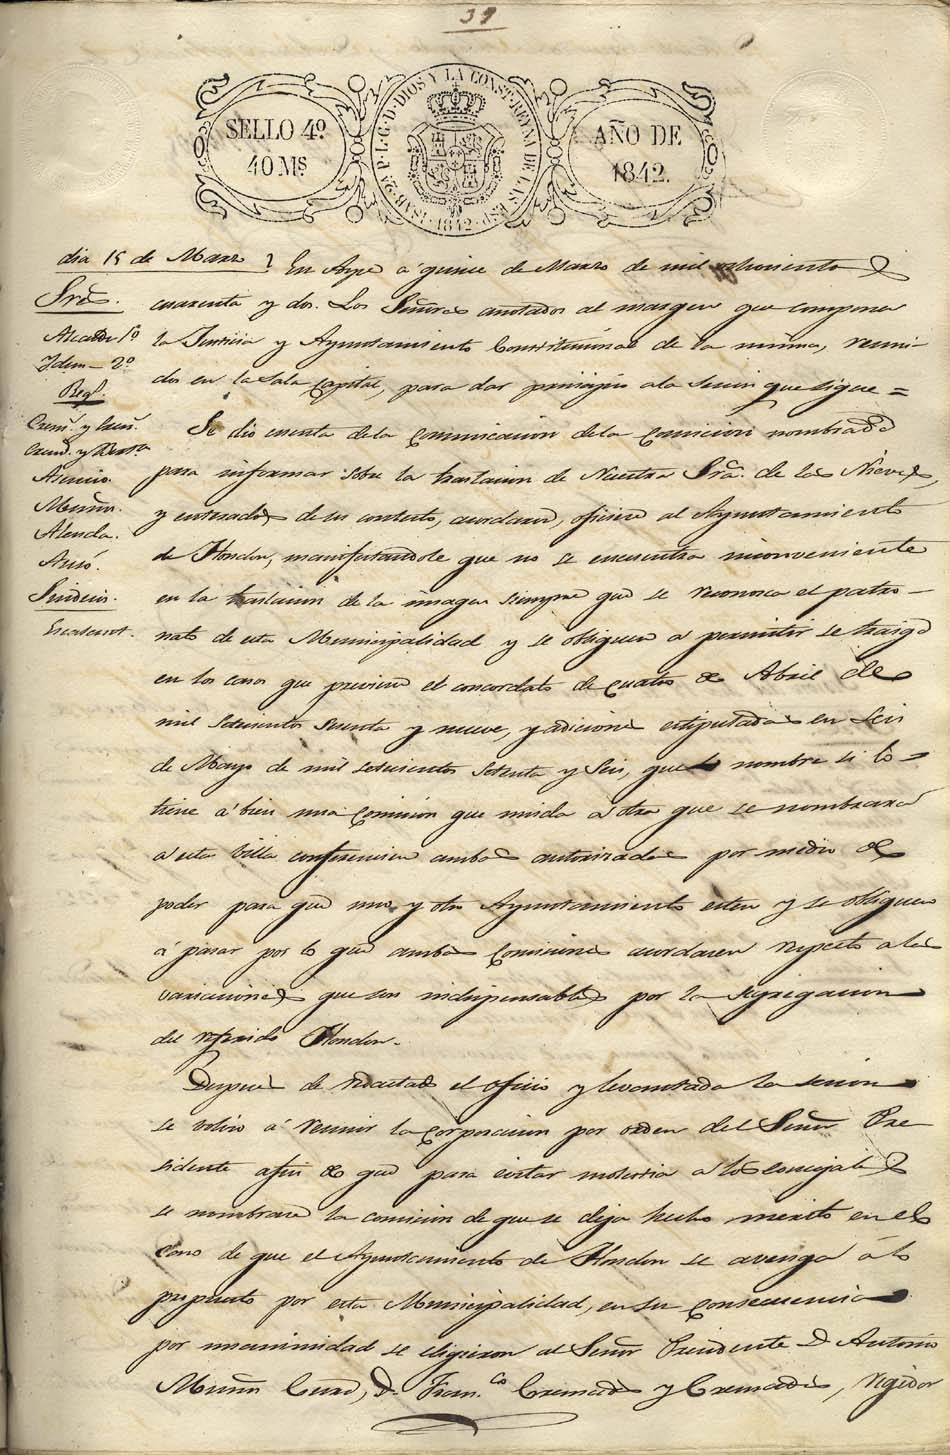 39
SELLO 4º
40 Mˢ
ISAB. 2ª P. L. G. D. DIOS Y LA CONST. REYNA DE LAS ESP. 1842
AÑO DE
1842.
dia 15 de Marzo
Sres.
Alcalde 1º
Idem 2º
Regs.
Crem.s y Crem.s
Crem.s y
Asencio.
Muñoz.
Alenda.
Ausó.
Sindicos.
Escolano.
En Aspe á quince de Marzo de mil ochocientos
cuarenta y dos. Los Señores anotados al margen que componen
la Justicia y Ayuntamiento Constitucional de la misma, reuni-
dos en la Sala Capital, para dar principio a la sesion que sigue =
Se dio cuenta de la comunicacion de la comision nombrada
para informar sobre la traslacion de Nuestra Sra. de las Nieves,
y enterados de su contesto, acordaron, oficiar al Ayuntamiento
de Hondon, manifestandole que no se encuentra inconveniente
en la traslacion de la imagen siempre que se reconosca el patro-
nato de esta Municipalidad y se obliguen a permitir se traiga
en los casos que previene el concordato de cuatro de Abril de
mil setecientos sesenta y nueve, y adiciones estipuladas en seis
de Mayo de mil setecientos setenta y seis, que nombre si lo
tiene á bien una comision que unida a otra que se nombrará
a esta Villa conferencien ambas autorizadas por medio de
poder para que uno y otro Ayuntamiento esten y se obliguen
á pasar por lo que ambas comisiones acordaren respecto a las
variaciones que son indispensables por la segregacion
del referido Hondon.
Despues de redactado el oficio y levantada la sesion
se volvio á reunir la corporacion por orden del Señor Pre
sidente afin de que para evitar molestia a los concejales
se nombrase la comision de que se deja hecho merito en el
caso de que el Ayuntamiento de Hondon se avenga á lo
propuesto por esta Municipalidad, en su consecuencia
por unanimidad se eligieron al Señor Presidente D. Antonio
Muñoz D. Fran.co Cremades y Cremades, regidor